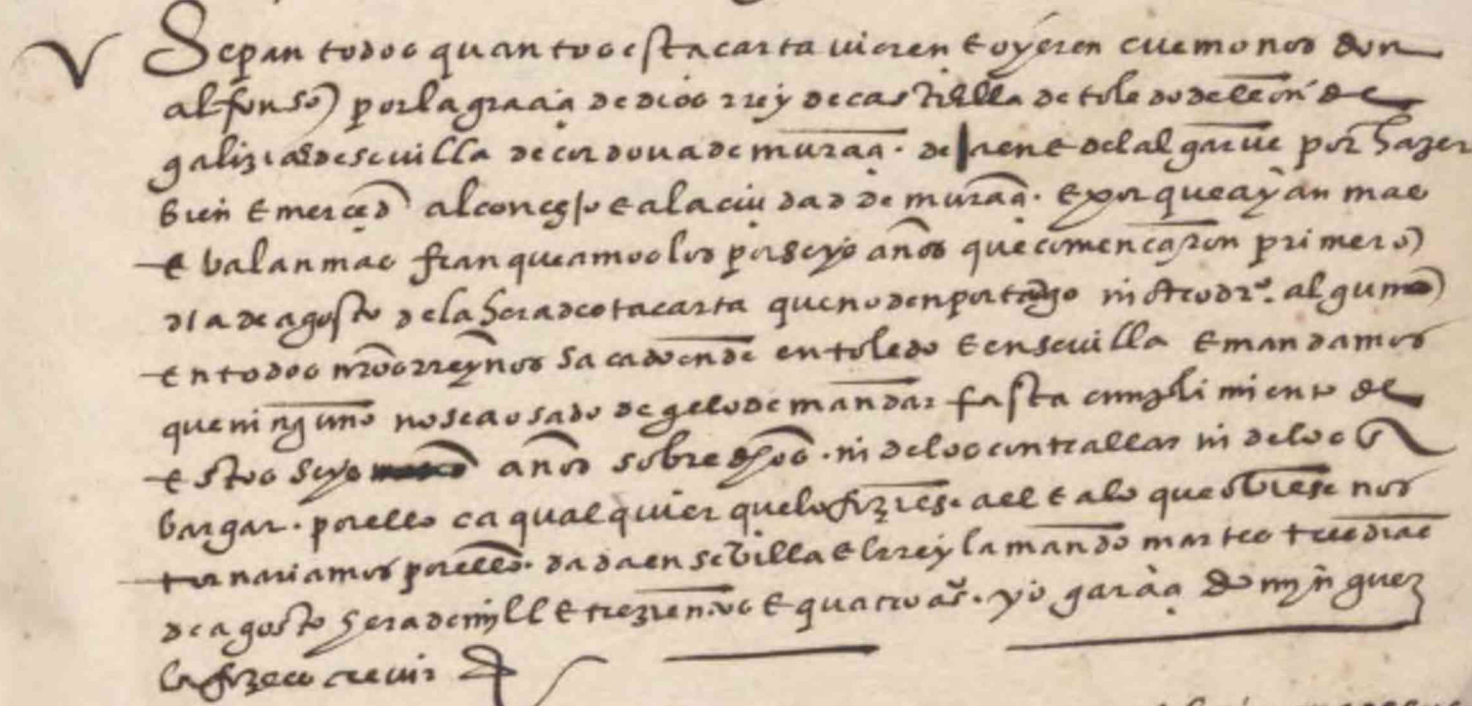 Sepan todos quantos esta carta vieren e oyeren cuemo nos don
alfonso por la graçia de dios rrey de castiella de toledo de leon de
galizia de sevilla de cordova de murçia. de jaen e del algarve por hazer
bien e merced al conçejo e a la ciudad de murçia. e porque ayan mas
e valan mas franqueamoslos por seys años que començaron primero
dia de agosto de la hera desta carta que no den portadgo ni otro dro. alguno
en todos nros rreynos sacado ende en toledo e en sevilla e mandamos
que ninguno no sea osado de gelo demandar fasta cunplimiento de
estos seys años sobredhos. ni de los contrallar ni de los en
bargar. por ello ca qualquier que lo fiziese. a el e a lo que oviese nos
tornariamos por ello. dada en sevilla el rrey la mando martes tres dias
de agosto hera de mill e trezientos e quatro as. yo garçia dominguez
la fize escrevir